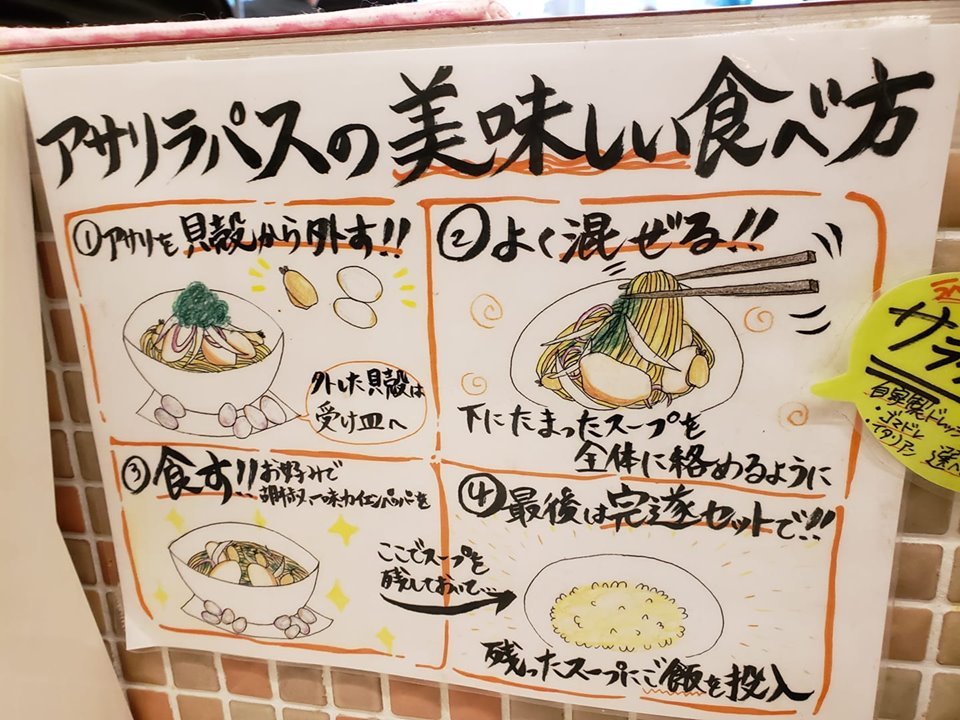 アサリラパスの美味しい食べ方
①アサリを貝殻から外す!!
外した貝殻は
受け皿へ
②よく混ぜる!!
下にたまったスープを
全体に絡めるように
③食す!!お好みで
胡椒、一味、カイエンペッパーを
ここでスープを
残しておいて…
④最後は完遂セットで!!
残ったスープにご飯を投入
サラ
自家製ドレッシ
・ゴマドレ
・イタリアン
選べ